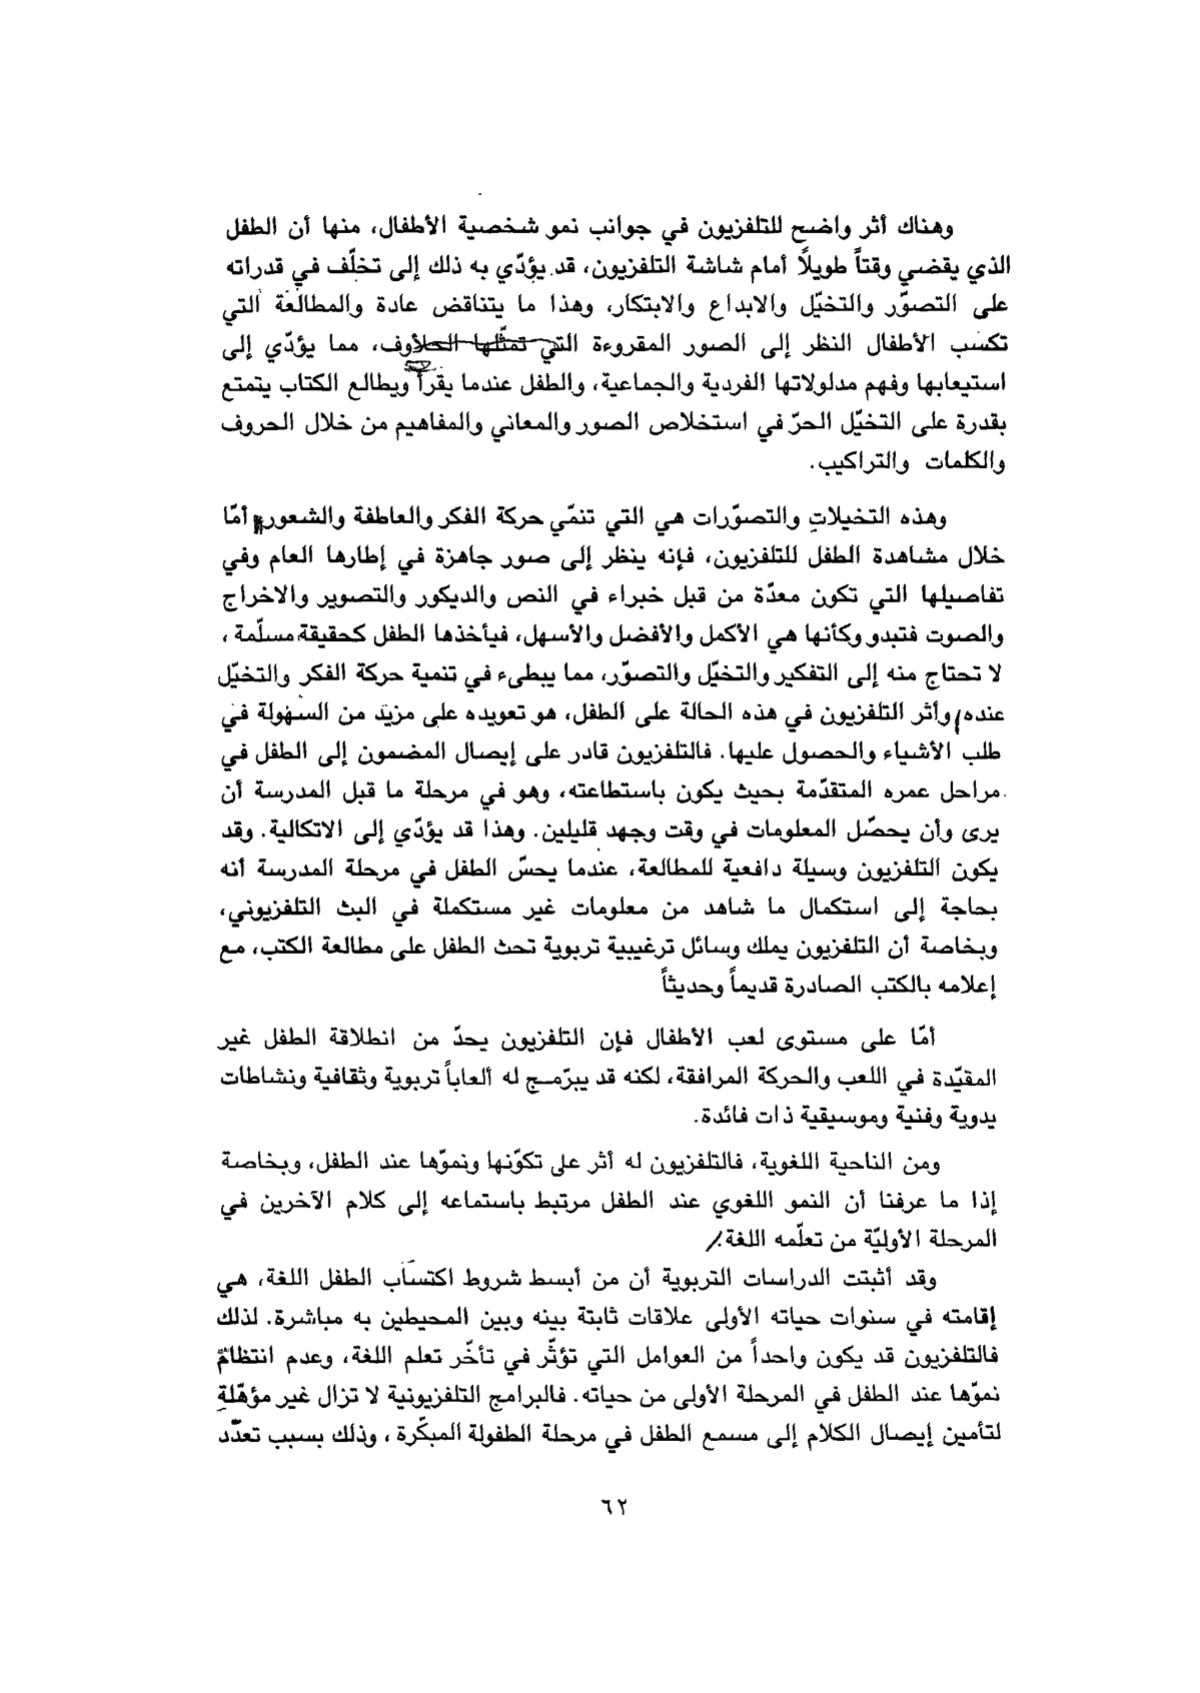 وهناك أثر واضح للتلفزيون في جوانب نمو شخصية الأطفال، منها أن الطفل
الذي يقضي وقتاً طويلاً أمام شاشة التلفزيون، قد يؤدّي به ذلك إلى تخلّف في قدراته
على التصوّر والتخيّل والابداع والابتكار، وهذا ما يتناقض عادة والمطالعة التي
تكسب الأطفال النظر إلى الصور المقروءة التي تمثّلها الحروف، مما يؤدّي إلى
استيعابها وفهم مدلولاتها الفردية والجماعية، والطفل عندما يقرأ ويطالع الكتاب يتمتع
بقدرة على التخيّل الحرّ في استخلاص الصور والمعاني والمفاهيم من خلال الحروف
والكلمات والتراكيب.
وهذه التخيلات والتصوّرات هي التي تنمّي حركة الفكر والعاطفة والشعور أمّا
خلال مشاهدة الطفل للتلفزيون، فإنه ينظر إلى صور جاهزة في إطارها العام وفي
تفاصيلها التي تكون معدّة من قبل خبراء في النص والديكور والتصوير والاخراج
والصوت فتبدو وكأنها هي الأكمل والأفضل والأسهل، فيأخذها الطفل كحقيقة مسلّمة،
لا تحتاج منه إلى التفكير والتخيّل والتصوّر، مما يبطىء في تنمية حركة الفكر والتخيّل
عنده وأثر التلفزيون في هذه الحالة على الطفل، هو تعويده على مزيد من السهولة في
طلب الأشياء والحصول عليها. فالتلفزيون قادر على إيصال المضمون إلى الطفل في
مراحل عمره المتقدّمة بحيث يكون باستطاعته، وهو في مرحلة ما قبل المدرسة أن
يرى وأن يحصّل المعلومات في وقت وجهد قليلين. وهذا قد يؤدّي إلى الاتكالية. وقد
يكون التلفزيون وسيلة دافعية للمطالعة، عندما يحسّ الطفل في مرحلة المدرسة أنه
بحاجة إلى استكمال ما شاهد من معلومات غير مستكملة في البث التلفزيوني،
وبخاصة أن التلفزيون يملك وسائل ترغيبية تربوية تحث الطفل على مطالعة الكتب، مع
إعلامه بالكتب الصادرة قديماً وحديثاً
أمّا على مستوى لعب الأطفال فإن التلفزيون يحدّ من انطلاقة الطفل غير
المقيّدة في اللعب والحركة المرافقة، لكنه قد يبرّمج له ألعاباً تربوية وثقافية ونشاطات
يدوية وفنية وموسيقية ذات فائدة.
ومن الناحية اللغوية، فالتلفزيون له أثر على تكوّنها ونموّها عند الطفل، وبخاصة
إذا ما عرفنا أن النمو اللغوي عند الطفل مرتبط باستماعه إلى كلام الآخرين في
المرحلة الأوليّة من تعلّمه اللغة.
وقد أثبتت الدراسات التربوية أن من أبسط شروط اكتساب الطفل اللغة، هي
إقامته في سنوات حياته الأولى علاقات ثابتة بينه وبين المحيطين به مباشرة. لذلك
فالتلفزيون قد يكون واحداً من العوامل التي تؤثّر في تأخّر تعلم اللغة، وعدم انتظام
نموّها عند الطفل في المرحلة الأولى من حياته. فالبرامج التلفزيونية لا تزال غير مؤهّلة
لتأمين إيصال الكلام إلى مسمع الطفل في مرحلة الطفولة المبكّرة، وذلك بسبب تعدّد
٦٢